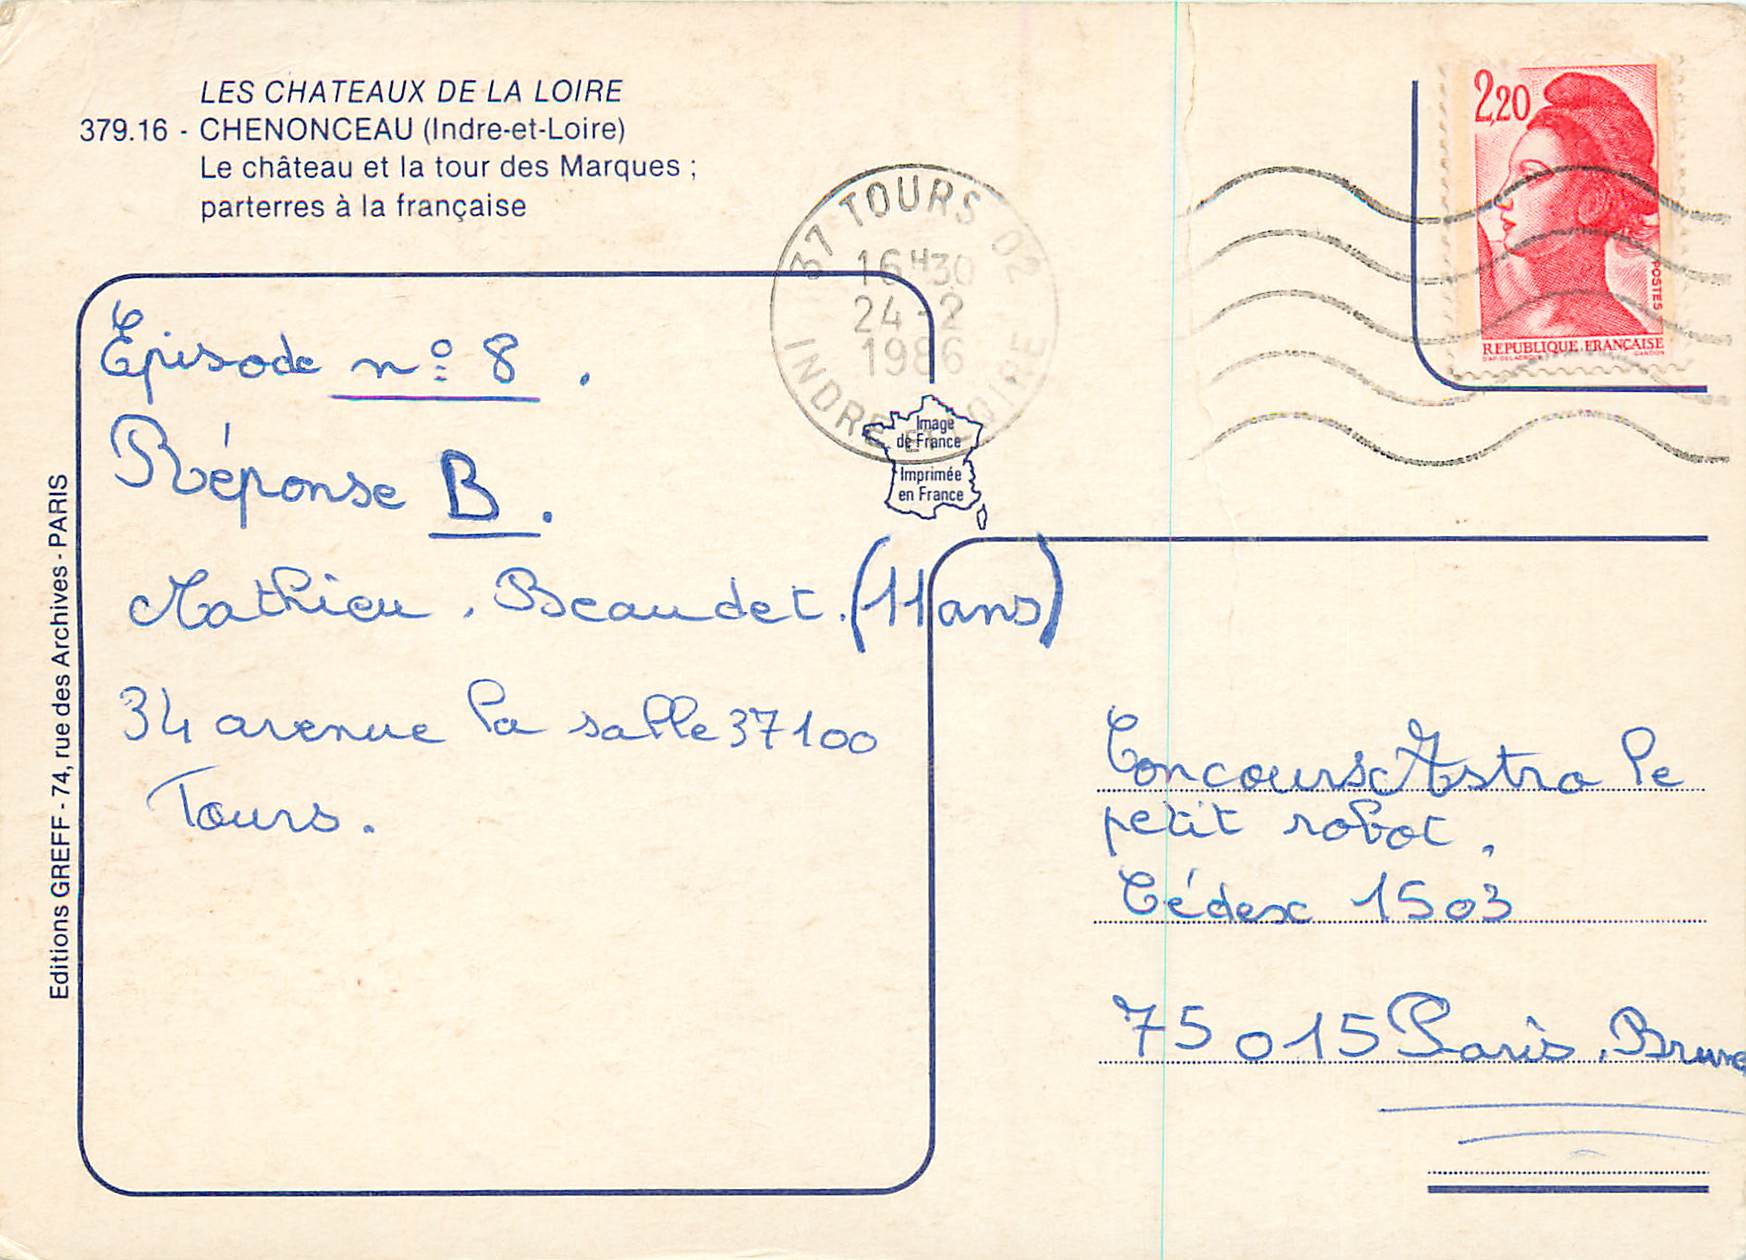 LES CHATEAUX DE LA LOIRE
379.16 - CHENONCEAU (Indre-et-Loire)
Le château et la tour des Marques ;
parterres à la française
37 TOURS 02
16H30
24-2
1986
INDRE ET LOIRE
2,20
POSTES
REPUBLIQUE FRANÇAISE
D'AP. DELACROIX GANDON
Image
de France
Imprimée
en France
Editions GREFF - 74, rue des Archives - PARIS
Episode n° 8.
Réponse B.
Mathieu. Beaudet. (11 ans)
34 avenue la salle 37100
Tours.
Concours Astro le
petit robot.
Cédex 1503
75015 Paris. Brune